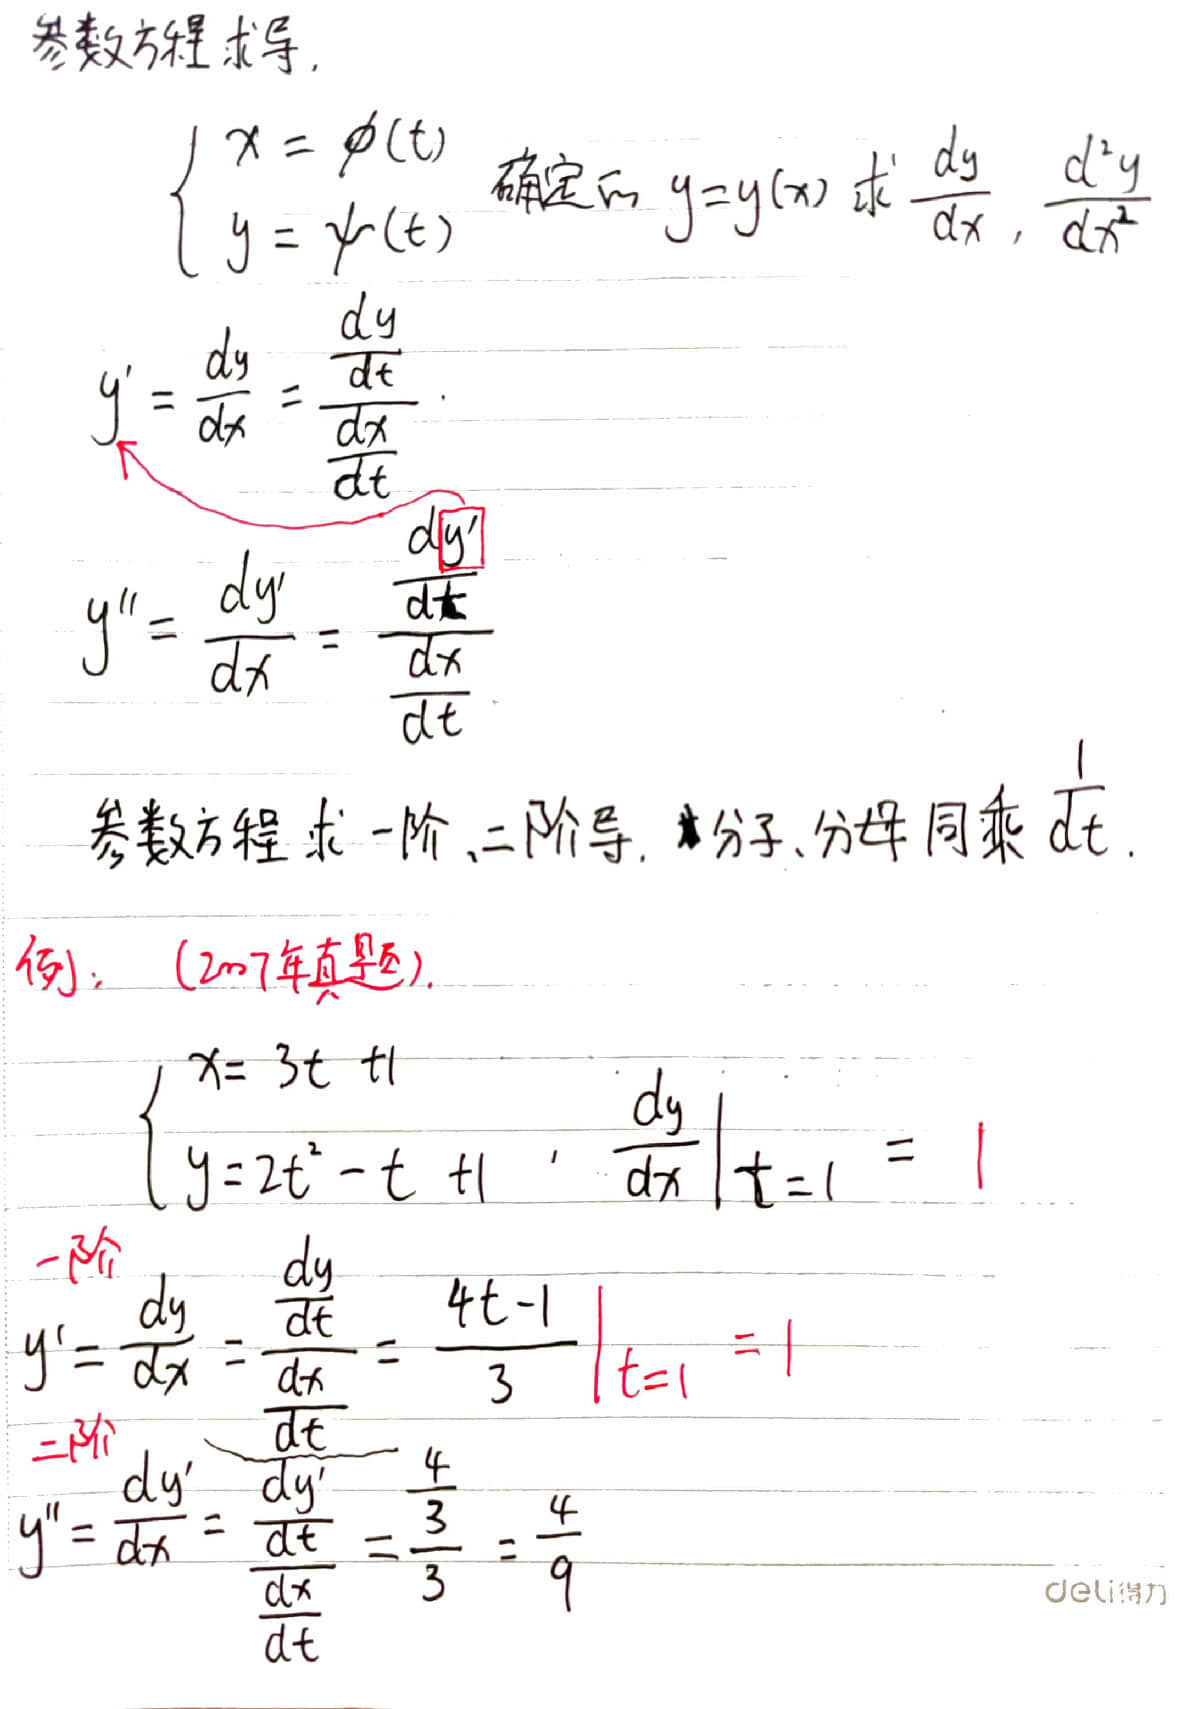 参数方程求导.
{ x = φ(t)
y = ψ(t) 确定的 y=y(x) 求 dy/dx , d²y/dx²
y' = dy/dx = (dy/dt)/(dx/dt) .
y'' = dy'/dx = (dy'/dt)/(dx/dt)
参数方程求一阶、二阶导. 分子、分母同乘 1/dt .
例: (2007年真题).
{ x= 3t +1
y=2t² - t +1 , dy/dx | t=1 = 1
一阶
y' = dy/dx = (dy/dt)/(dx/dt) = (4t-1)/3 | t=1 = 1
二阶
y'' = dy'/dx = (dy'/dt)/(dx/dt) = (4/3)/3 = 4/9
deli得力